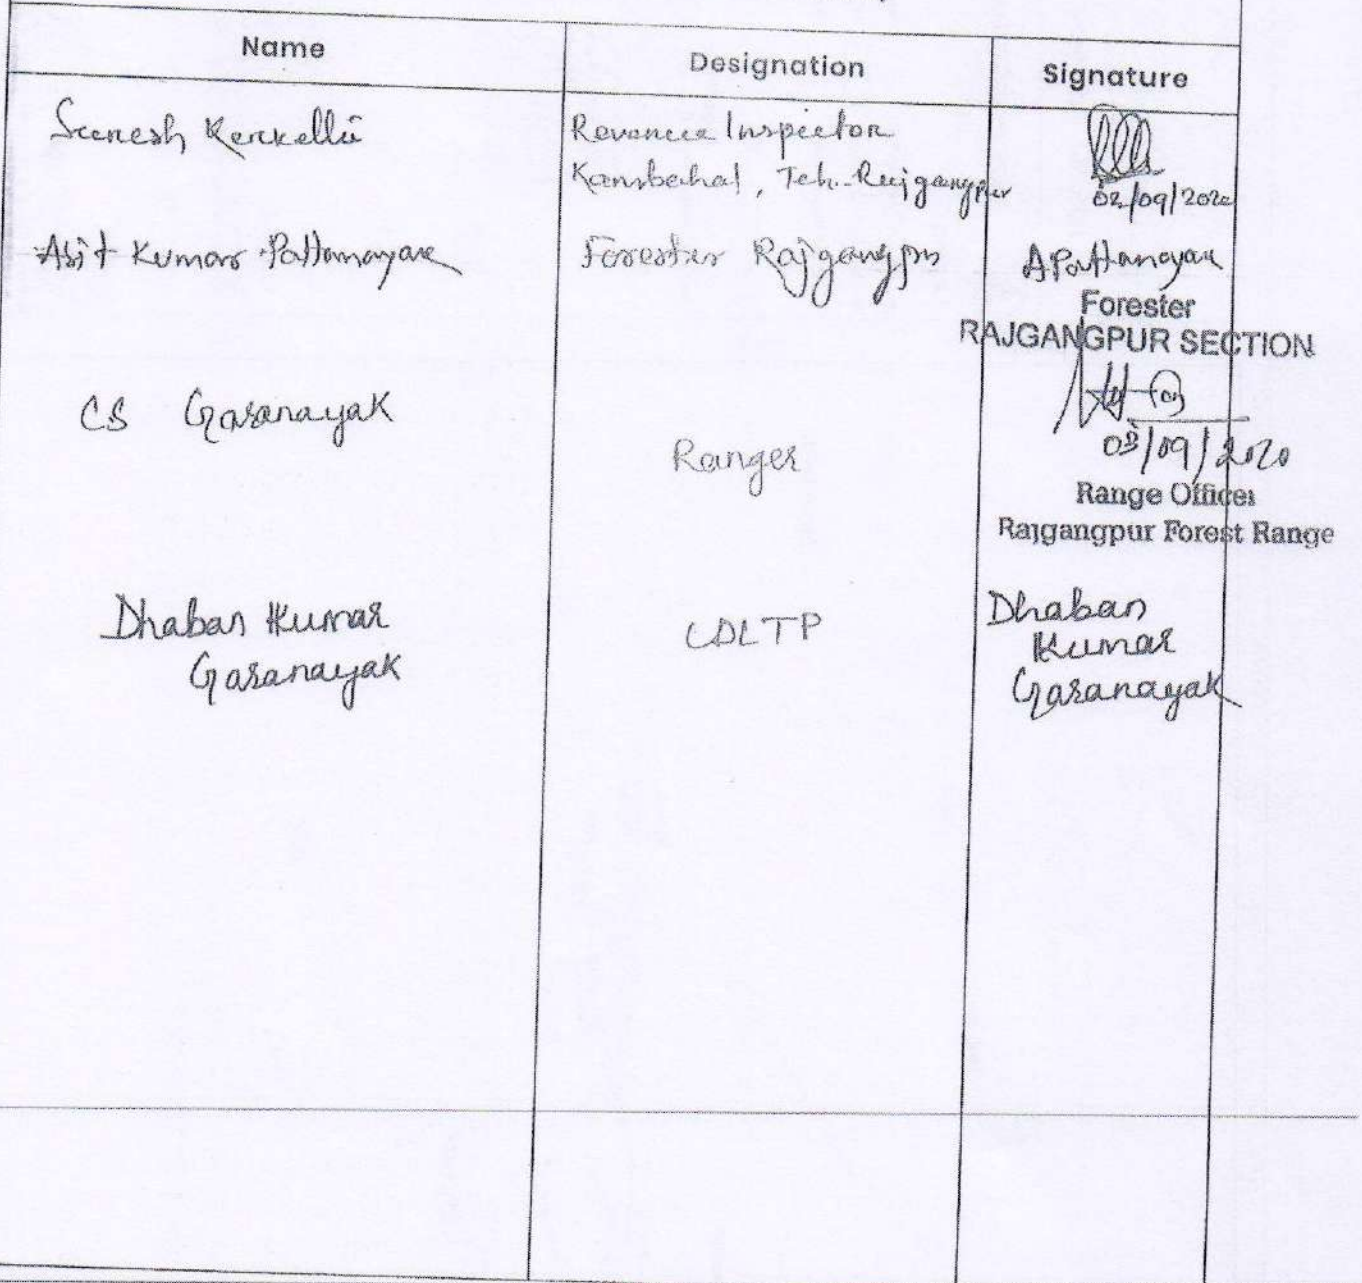 Name Designation Signature
Suresh Kerketta Revenue Inspector
Kansbahal, Teh. Rajgangpur 02/09/2020
Asit Kumar Pattanayak Forester Rajgangpur APattanayak
Forester
RAJGANGPUR SECTION
CS Garanayak
Ranger 03/09/2020
Range Officer
Rajgangpur Forest Range
Dhaban Kumar CDLTP Dhaban
Garanayak Kumar
Garanayak